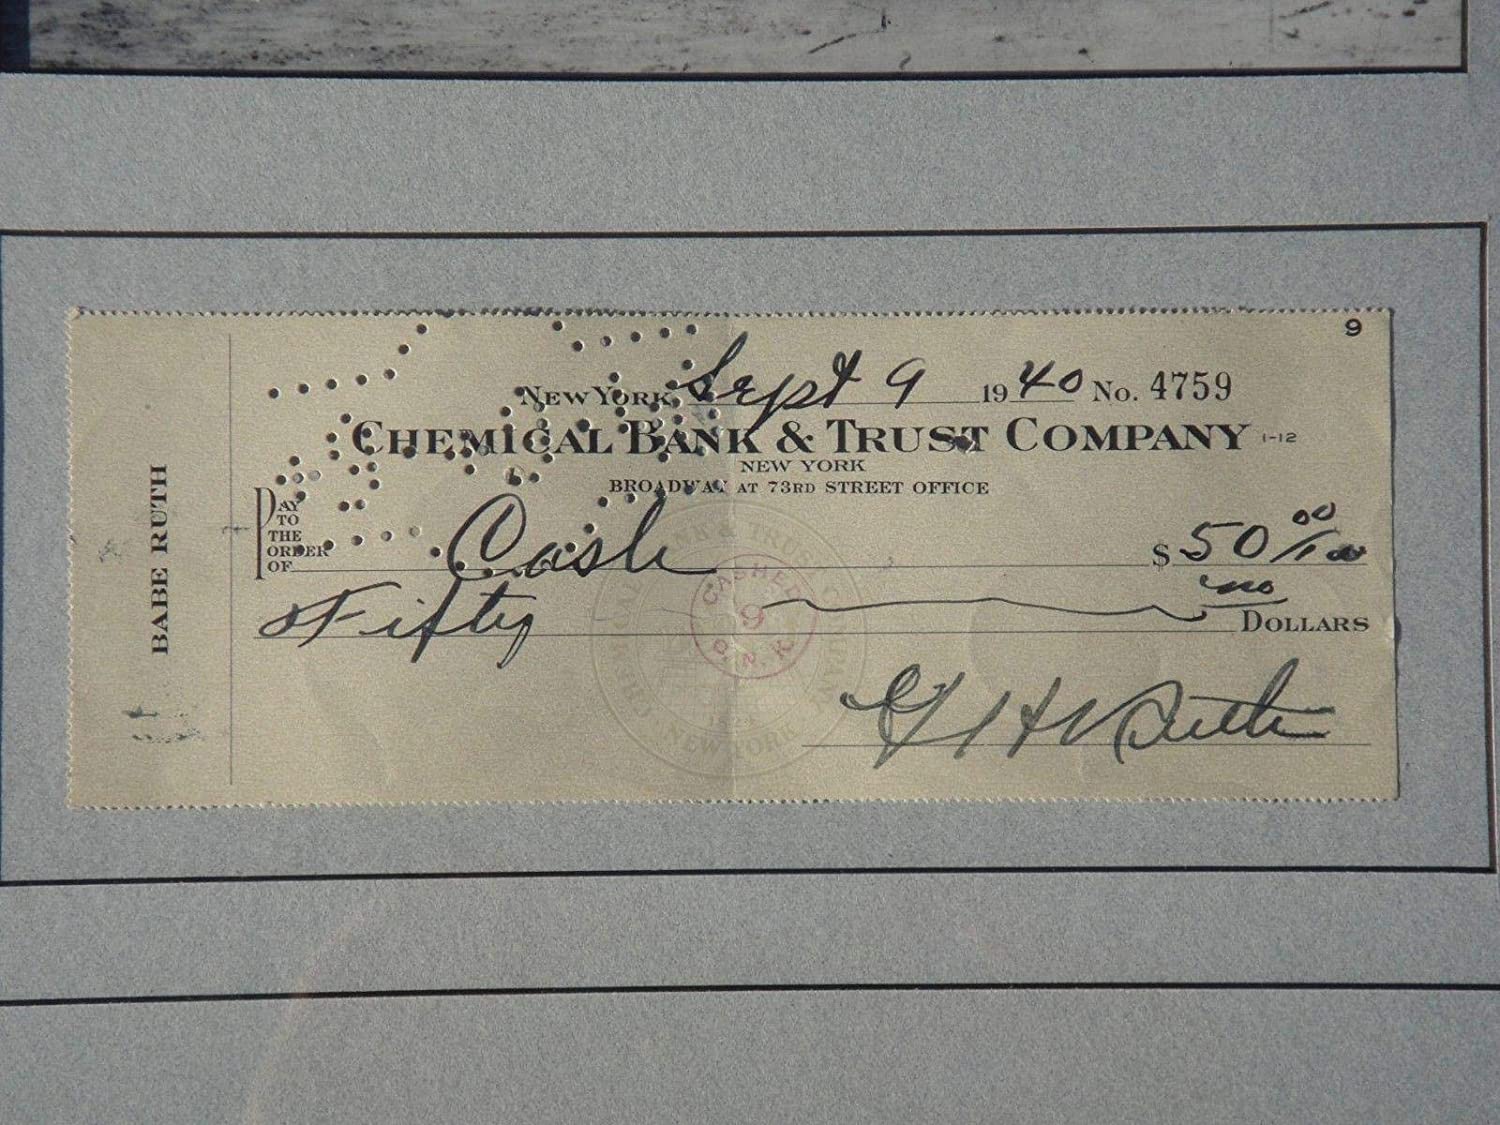 9
New York, Sept 9 1940 No. 4759
Chemical Bank & Trust Company 1-12
NEW YORK
BROADWAY AT 73RD STREET OFFICE
PAY TO THE ORDER OF Cash $ 50 00/100
Fifty no Dollars
CASHED
9
G H Ruth
BABE RUTH
NEW YORK